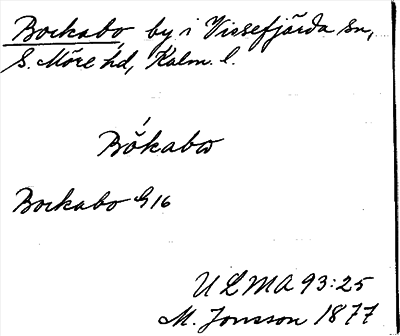 Bockabo by i Vissefjärda sn,
S. Möre hd, Kalm. l.
Bŏ́kabω
Bockabo G16
ULMA 93:25
M. Jonsson 1877